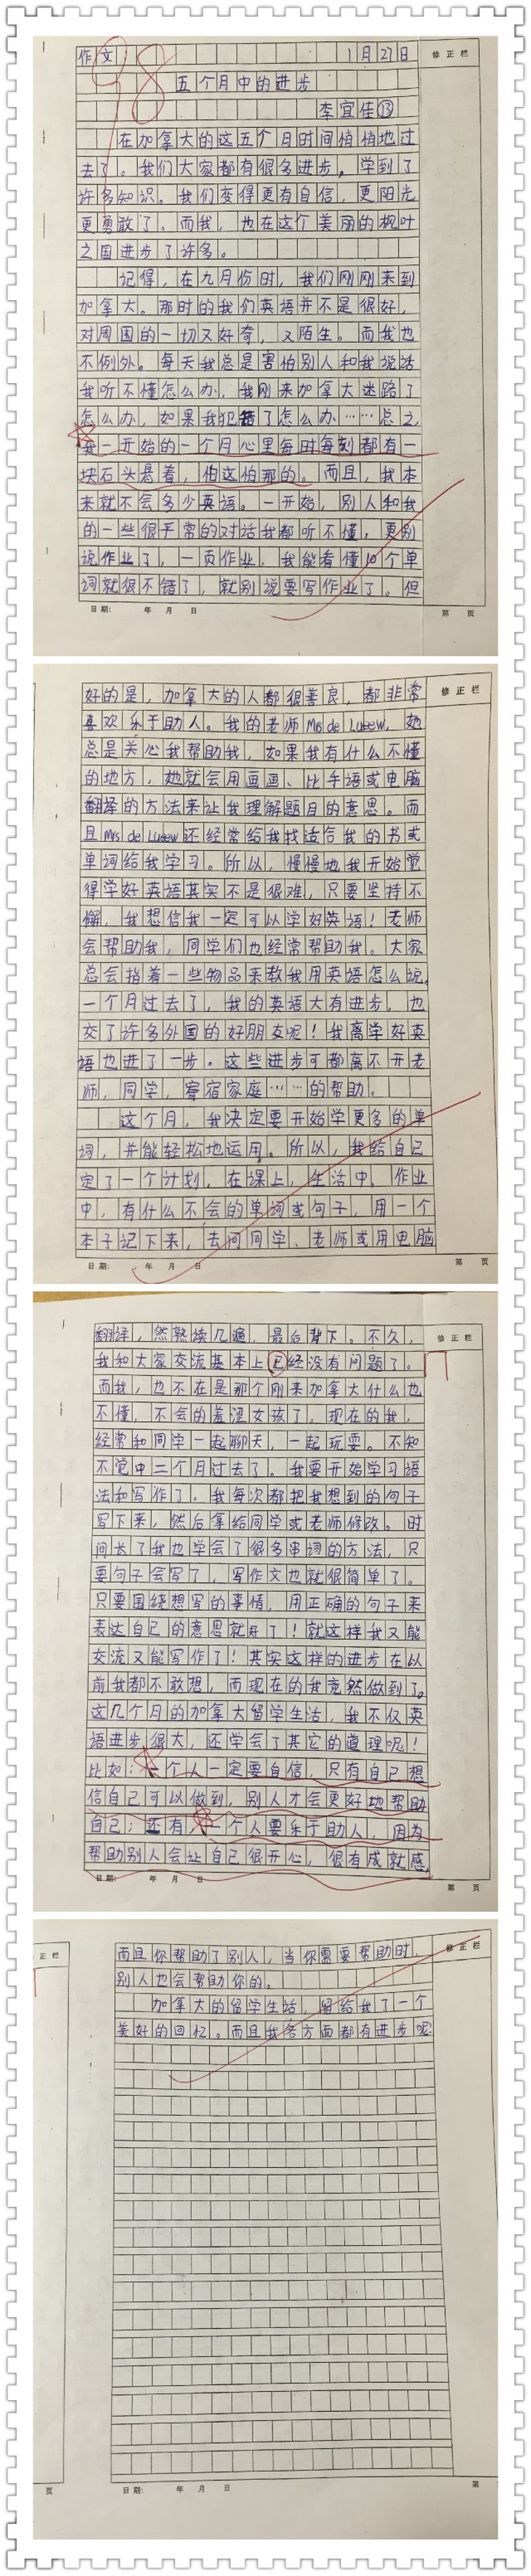 作文 98 1月27日 修正栏
五个月中的进步
李宜佳⑬
在加拿大的这五个月时间悄悄地过
去了。我们大家都有很多进步，学到了
许多知识。我们变得更有自信，更阳光
更勇敢了。而我，也在这个美丽的枫叶
之国进步了许多。
记得，在九月份时，我们刚刚来到
加拿大。那时的我们英语并不是很好，
对周围的一切又好奇，又陌生。而我也
不例外。每天我总是害怕别人和我说话
我听不懂怎么办，我刚来加拿大迷路了
怎么办，如果我犯错了怎么办……总之，
我一开始的一个月心里每时每刻都有一
块石头悬着，怕这怕那的。而且，我本
来就不会多少英语。一开始，别人和我
的一些很平常的对话我都听不懂，更别
说作业了，一页作业，我能看懂10个单
词就很不错了，就别说要写作业了。但
日期: 年 月 日 第 页
修正栏
好的是，加拿大的人都很善良，都非常
喜欢乐于助人。我的老师Mrs de 她
总是关心我帮助我，如果我有什么不懂
的地方，她就会用画画、比手语或电脑
翻译的方法来让我理解题目的意思。而
且Mrs de 还经常给我找适合我的书或
单词给我学习。所以，慢慢地我开始觉
得学好英语其实不是很难，只要坚持不
懈，我想信我一定可以学好英语！老师
会帮助我，同学们也经常帮助我。大家
总会指着一些物品来教我用英语怎么说。
一个月过去了，我的英语大有进步，也
交了许多外国的好朋友呢！我离学好英
语也进了一步。这些进步可都离不开老
师，同学，寄宿家庭……的帮助。
这个月，我决定要开始学更多的单
词，并能轻松地运用。所以，我给自己
定了一个计划，在课上，生活中，作业
中，有什么不会的单词或句子，用一个
本子记下来，去问同学、老师或用电脑
日期: 年 月 日 第 页
修正栏
翻译，然后读几遍，最后背下。不久，
我和大家交流基本上已经没有问题了。
而我，也不在是那个刚来加拿大什么也
不懂，不会的羞涩女孩了。现在的我，
经常和同学一起聊天，一起玩耍。不知
不觉中二个月过去了。我要开始学习语
法和写作了。我每次都把我想到的句子
写下来，然后拿给同学或老师修改。时
间长了我也学会了很多串词的方法，只
要句子会写了，写作文也就很简单了。
只要围绕想写的事情，用正确的句子来
表达自己的意思就好了！就这样我又能
交流又能写作了！其实这样的进步在以
前我都不敢想，而现在的我竟然做到了。
这几个月的加拿大留学生活，我不仅英
语进步很大，还学会了其它的道理呢！
比如：一个人一定要自信，只有自己想
信自己可以做到，别人才会更好地帮助
自己；还有，一个人要乐于助人，因为
帮助别人会让自己很开心，很有成就感，
日期: 年 月 日 第 页
正栏 修正栏
而且你帮助了别人，当你需要帮助时，
别人也会帮助你的。
加拿大的留学生活，留给我了一个
美好的回忆。而且我各方面都有进步呢！
页 日期: 年 月 日 第